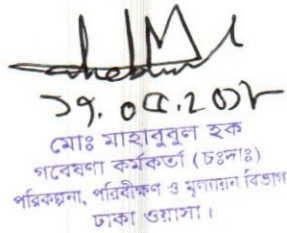 ১৭.০৫.২০১৮
মোঃ মাহাবুবুল হক
গবেষণা কর্মকর্তা (চঃদাঃ)
পরিকল্পনা, পরিবীক্ষণ ও মূল্যায়ন বিভাগ
ঢাকা ওয়াসা।